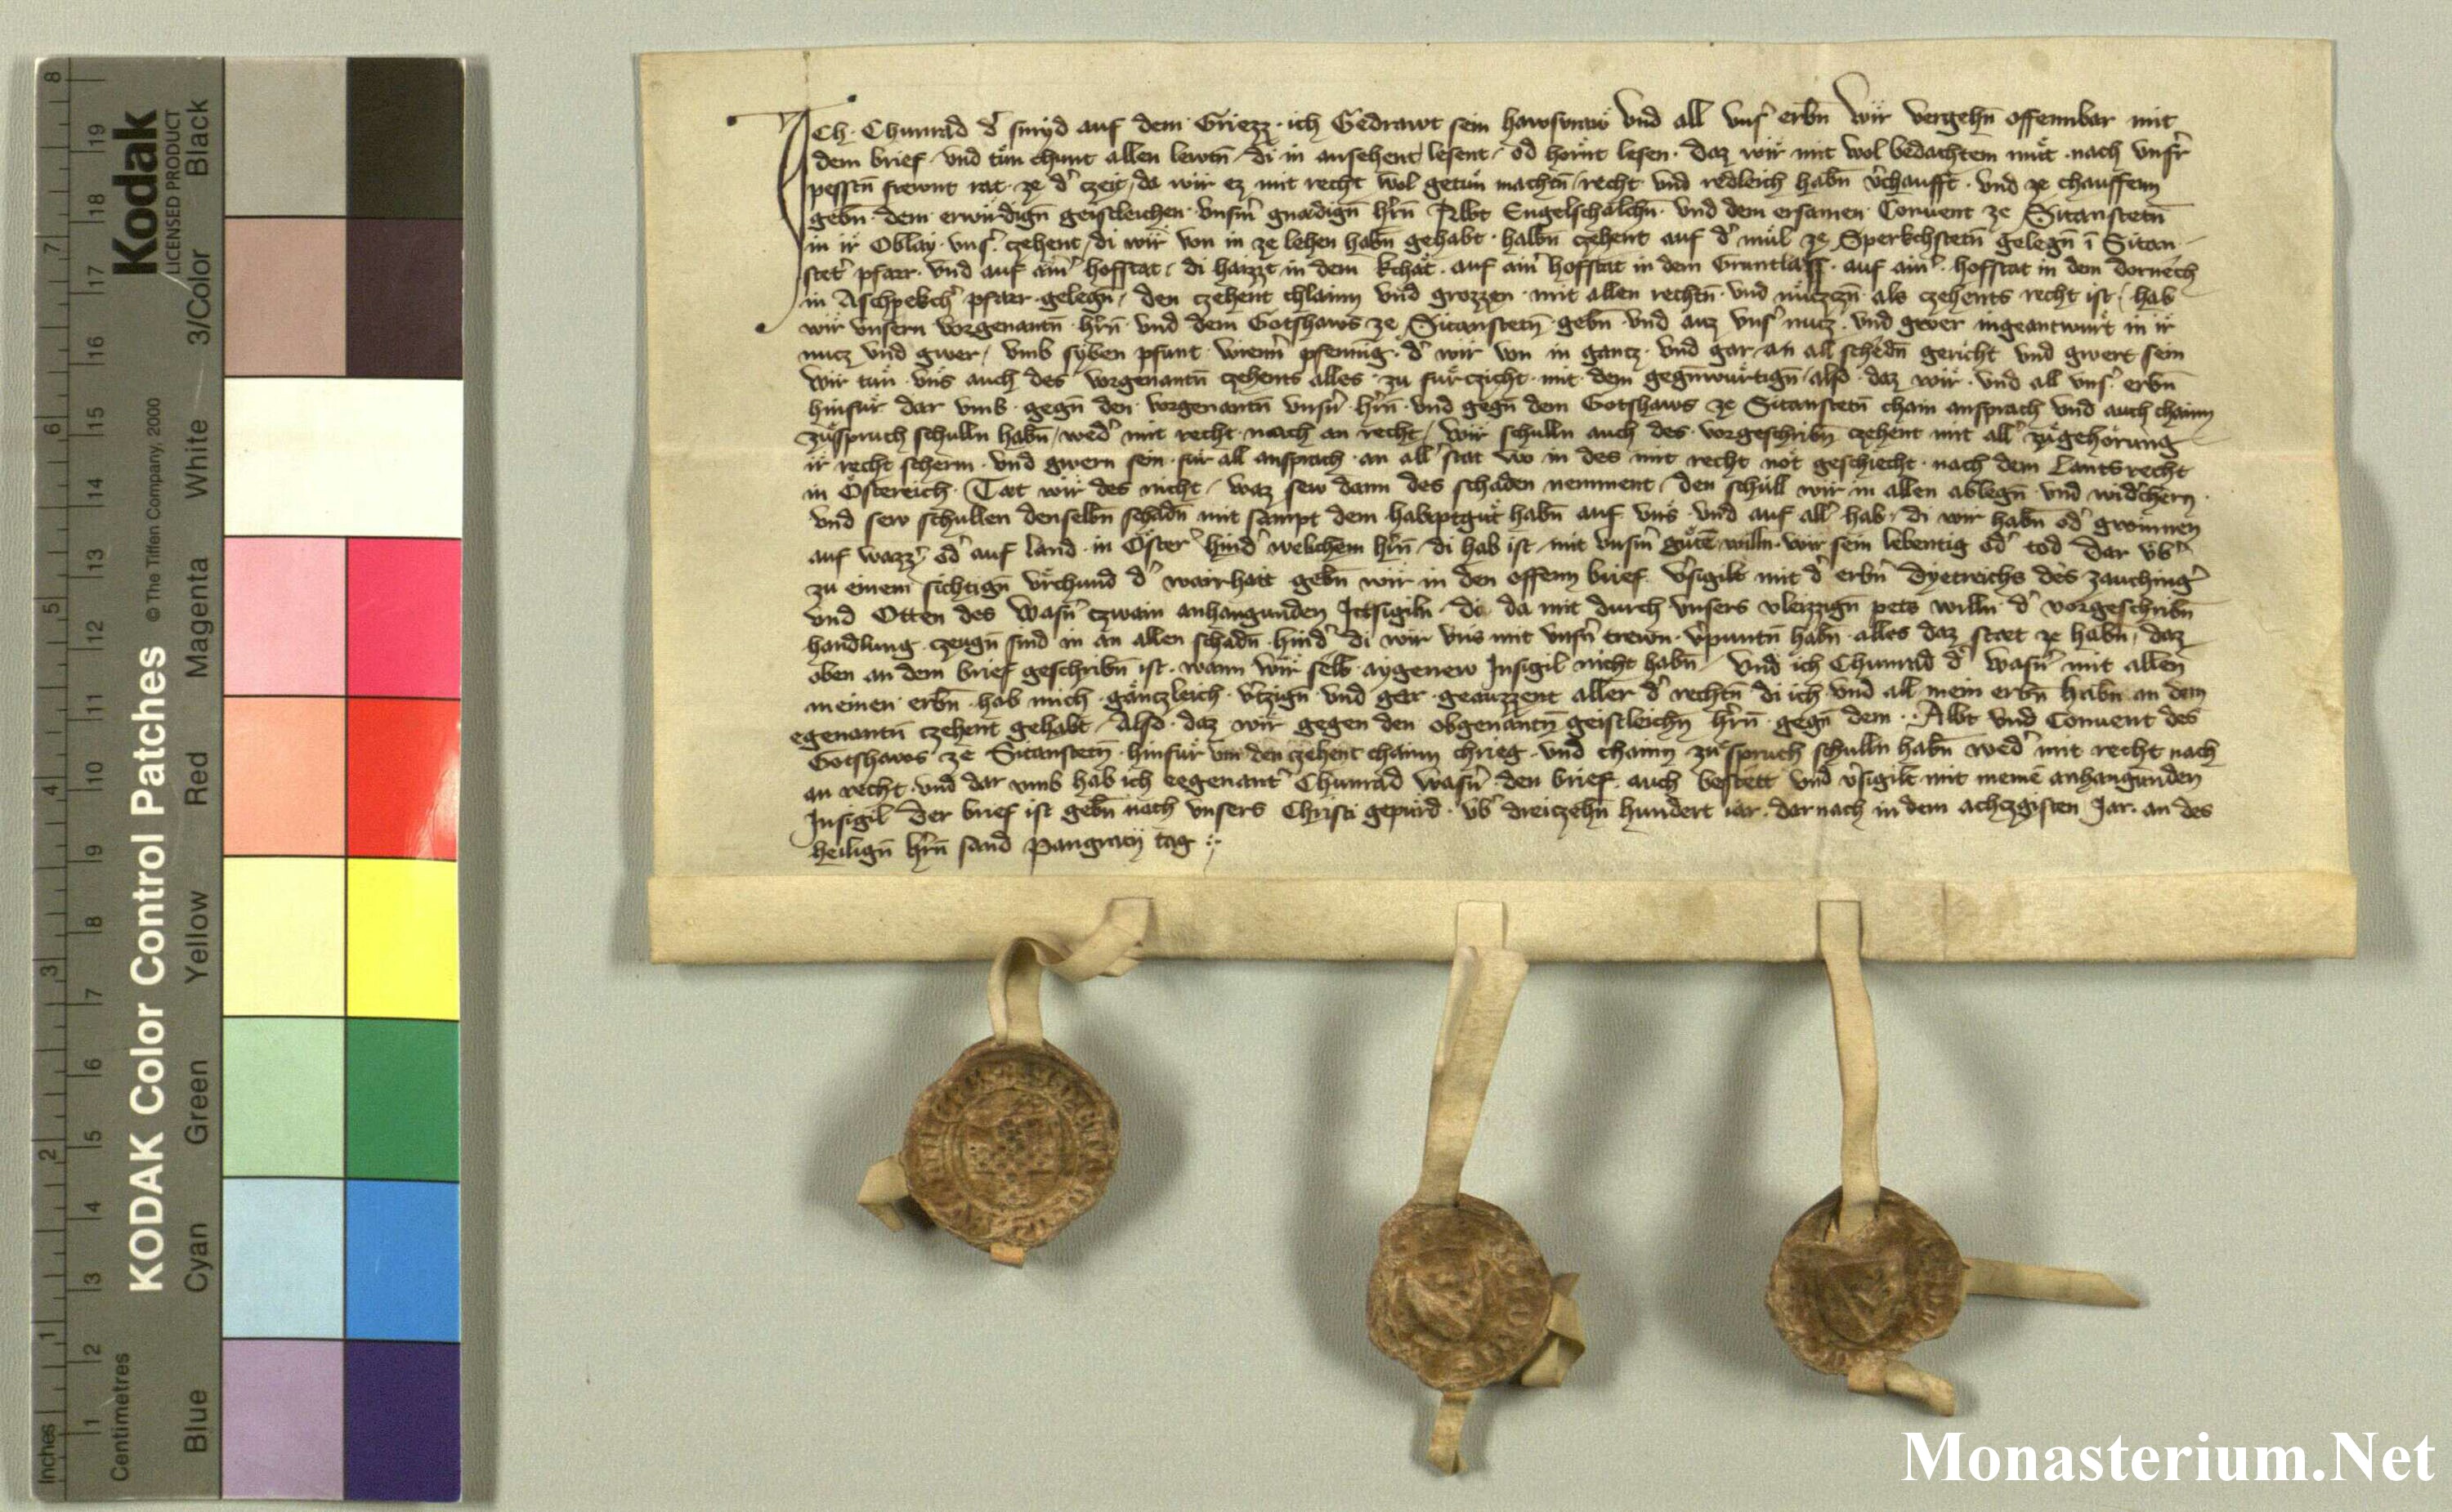 Ich Chunrad d' smyd auf dem Griezz ich Gedrawt sein hawsvraw vnd all vns' erbn̄ wir vergehn̄ offennbar mit
dem brief vnd tün chunt allen lewtn̄ di in ansehent lesent od hornt lesen daz wir mit wol bedachtem müt nach vnsr̄
pesstn̄ frewnt rat ze d' czeit da wir ez mit recht wol getün machtn̄ recht vnd redleich habn̄ v'chaufft vnd ze chauffenn
gebn̄ dem erwirdign̄ geistleichen vnsm̄ gnadign̄ hr̄n Abt Engelschalchn̄ vnd dem ersamen Conuent ze Sitanstetn̄
in ir Oblay vns' czehent di wir von in ze lehen habn̄ gehabt halbn̄ czehent auf d' mül ze Sperkchstein gelegn̄ ī Sitan
stet' pfarr vnd auf ain' hofstat di haizzt in dem kchat auf ain' hofstat in dem Gruntlass auf ain' hofstat in dem dornech
in Aschpekch' pfarr gelegn̄ den czehent chlainn vnd grozzen mit allen rechtn̄ vnd nüczczn̄ als czehents recht ist hab
wir vnsern vorgenantn̄ hr̄n vnd dem Gotshaws ze Sitanstetn̄ gebn̄ vnd auz vns' nucz vnd gwer ingeantwurt in ir
nucz vnd gwer vmb syben pfunt wienn' pfennīg d' wir von in gantz vnd gar an all schedn̄ gericht vnd gwert sein
wir tün vns auch des vorgenantn̄ czehents alles zu fürczicht mit dem gegnwürtign̄ also daz wir vnd all vns' erbn̄
hinfur dar vmb gegn̄ den vorgenantn̄ vnsn̄ hr̄n vnd gegn̄ dem Gotshaws ze Sitanstetn̄ chain ansprach vnd auch chainn
züspruch schulln habn̄ wed' mit recht nach an recht wir schulln auch des vorgeschribn̄ czehent mit all' zügehörung
ir recht scherm vnd gwern sein für all ansprach an all' stat wo in des mit recht not geschiecht nach dem Lantsrecht
in Östereich Tæt wir des nicht waz sew dann des schaden nemment den schüll wir in allen ablegn̄ vnd wid'chern
vnd sew schullen denselbn̄ schadn̄ mit sampt dem habptgut habn̄ auf vns vnd auf all' hab di wir habn̄ od' gwinnen
auf wazz' od' auf land in Öster' hind' welichem hr̄n di hab ist mit vnsm̄ gütē willn wir sein lebentig od' tod dar vb'
zu einem sichtign̄ vrchund d' warhait gebn̄ wir in den offenn brief v'sigilt mit d' erbn̄ Dyetreichs des zauching'
vnd Otten des Wasn' czwain anhangunden Insigiln di da mit durch vnsers vleizzign̄ pets willn d' vorgeschribn̄
handlung czeugn̄ sind in an allen schadn̄ hind' di wir vns mit vnsn̄ trewn v'puntn̄ habn̄ alles daz stæt ze habn̄ daz
oben an dem brief geschribn̄ ist wann wir selb aygenew Insigil nicht habn̄ vnd ich Chunrad d' wasn' mit allen
meinen erbn̄ hab mich gantzleich v'tzign̄ vnd gar geauzzent aller d' rechtn̄ di ich vnd all mein erbn̄ habn̄ an dem
egenantn̄ czehent gehabt Also daz wir gegen den obgenantn̄ geistleichn̄ hr̄n gegn̄ dem Abt vnd Conuent des
Gotshaws ze Sitanstetn̄ hinfür vm den czehent chainn chrieg vnd chainn züspruch schulln habn̄ wed' mit recht nach
an recht vnd dar vmb hab ich egenant' Chunrad wasn' den brief auch bestett vnd v'sigilt mit meinē anhangunden
Insigil Der brief ist gebn̄ nach vnsers Christi gepurd vb' dreiczehn̄ hundert iar darnach in dem achczgisten Jar an des
heilign̄ hr̄n sand Pangraczij tag
Kodak
LICENSED PRODUCT
KODAK Color Control Patches
© The Tiffen Company, 2000
Blue Cyan Green Yellow Red Magenta White 3/Color Black
Inches 1 2 3 4 5 6 7 8
Centimetres 1 2 3 4 5 6 7 8 9 10 11 12 13 14 15 16 17 18 19
Monasterium.Net